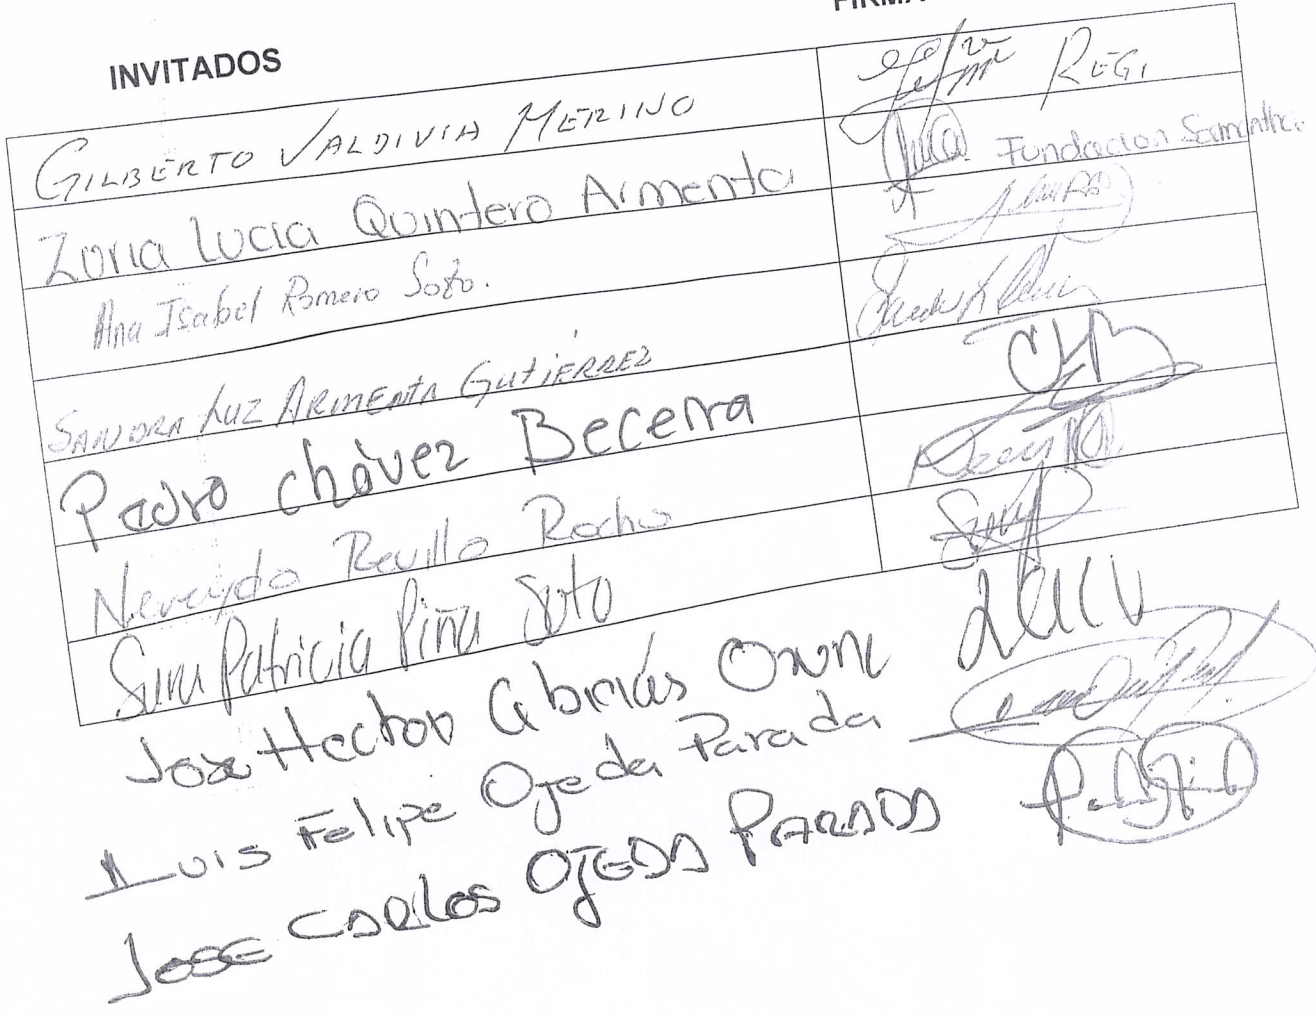 INVITADOS
GILBERTO VALDIVIA MERINO REGI
Zoria Lucia Quintero Armenta Fundacion Samantha
Ana Isabel Romero Soto.
SANDRA LUZ ARMENTA GUTIÉRREZ
Pedro Chávez Becerra
Nereyda Revillo Rocha
Patricia Piña Soto
Jose Hector
Luis Felipe Ojeda Parada
JOSE CARLOS OJEDA PARADA